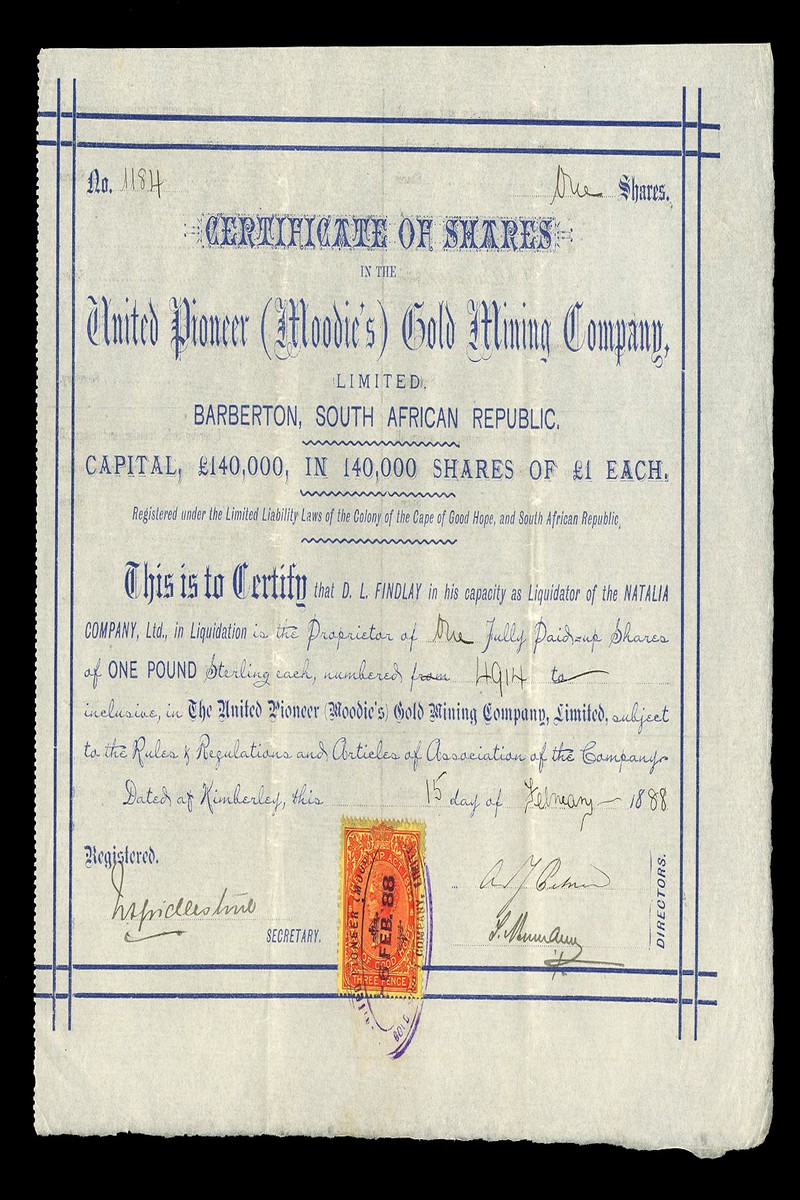 No. 1184 One Shares.
CERTIFICATE OF SHARES
IN THE
United Pioneer (Moodie's) Gold Mining Company,
LIMITED,
BARBERTON, SOUTH AFRICAN REPUBLIC.
CAPITAL, £140,000, IN 140,000 SHARES OF £1 EACH.
Registered under the Limited Liability Laws of the Colony of the Cape of Good Hope, and South African Republic,
This is to Certify that D. L. FINDLAY in his capacity as Liquidator of the NATALIA
COMPANY, Ltd., in Liquidation is the Proprietor of One Fully Paid-up Shares
of ONE POUND Sterling each, numbered from 4914 to
inclusive, in The United Pioneer (Moodie's) Gold Mining Company, Limited, subject
to the Rules & Regulations and Articles of Association of the Company.
Dated at Kimberley, this 15 day of February 1888
Registered.
SECRETARY.
DIRECTORS.
FEB. 88
OF GOOD
THREE PENCE
PIONEER (MOO
COMPANY, LIMITE
GOLD